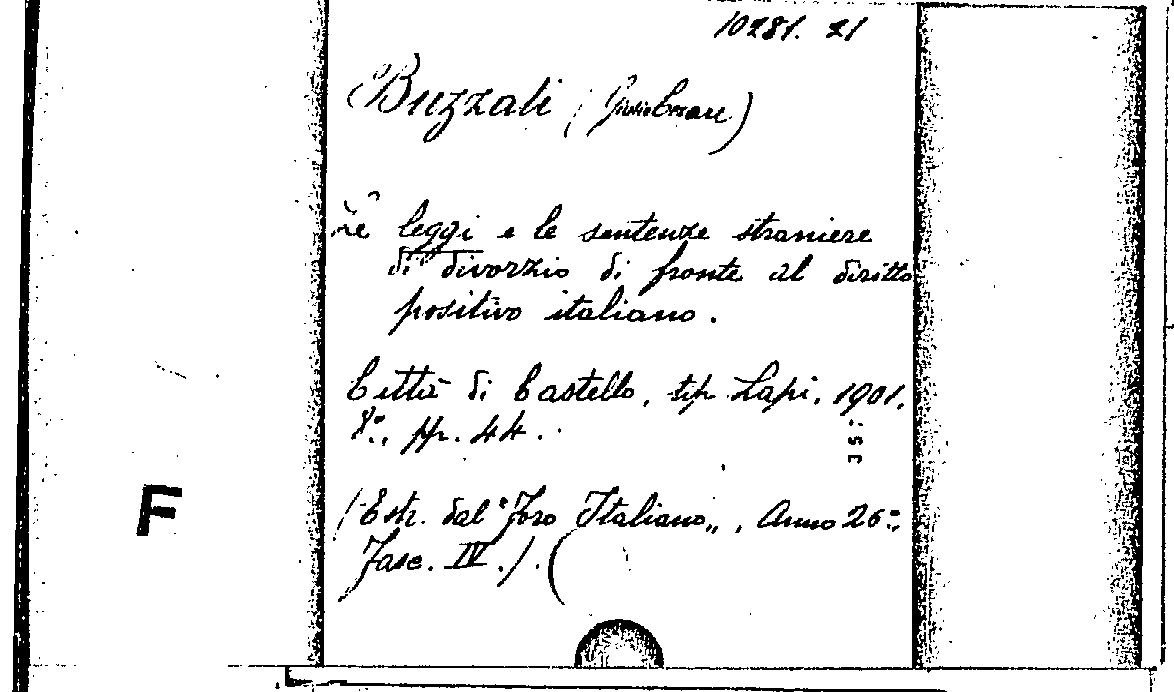 10281. 21
Buzzati (Giulio Cesare)
Le leggi e le sentenze straniere
di divorzio di fronte al diritto
positivo italiano.
Città di Castello, tip Lapi, 1901.
8°., pp. 44.
(Estr. dal "Foro Italiano„, Anno 26°.,
Fasc. IV.). (
F